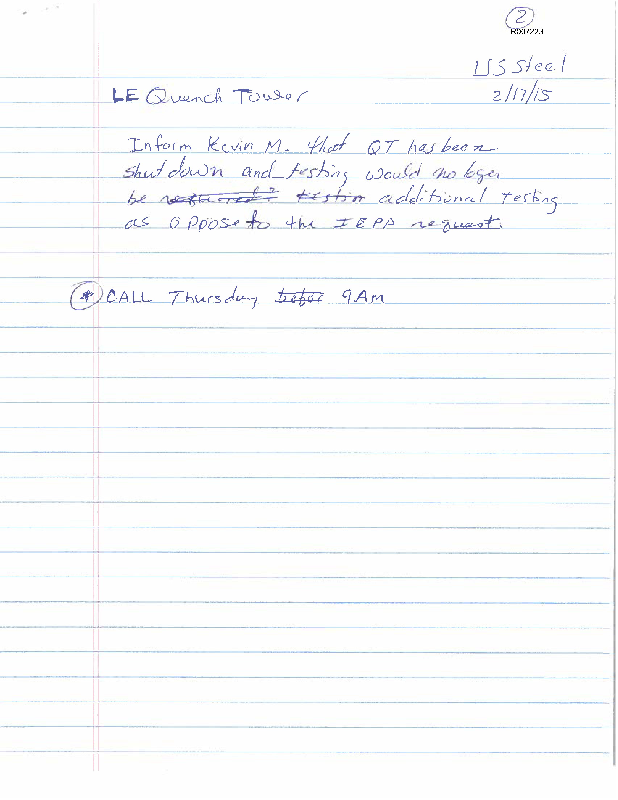 2
R007223
US Steel
LE Quench Tower
2/17/15
Inform Kevin M. that QT has been
shut down and testing would no loger
be required? testin additional testing
as oppose to the IEPA request.
* CALL Thursday before 9Am